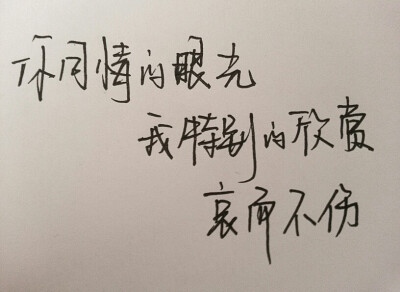 你同情的眼光
我特别的欣赏
哀而不伤